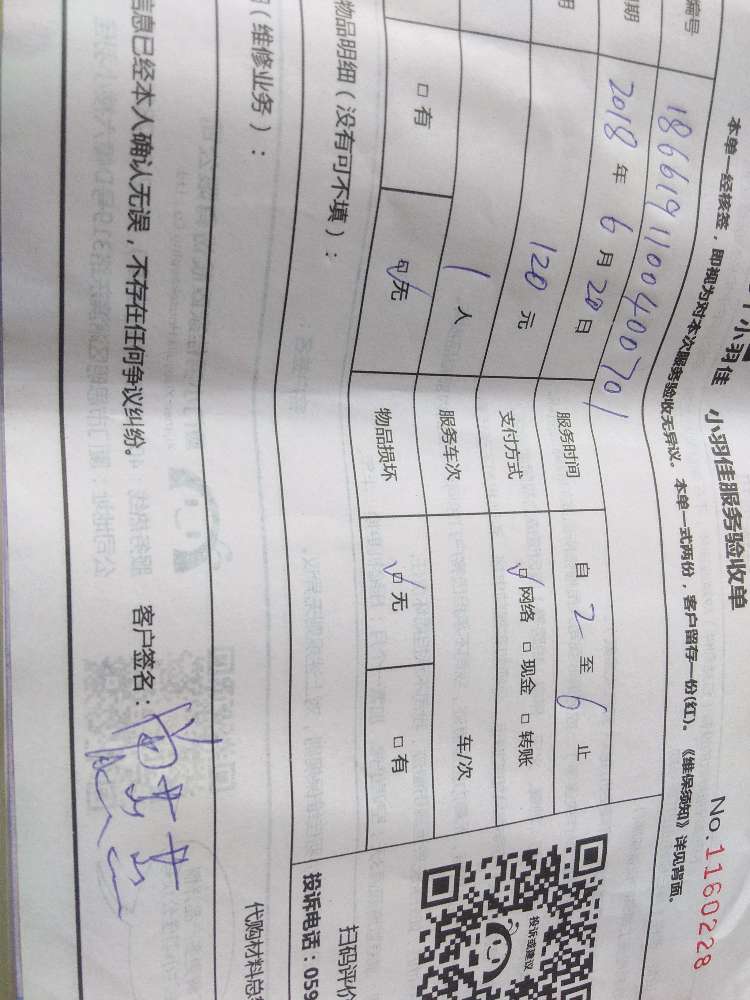 小羽佳 小羽佳服务验收单 No.1160228
本单一经核签，即视为对本次服务验收无异议。本单一式两份，客户留存一份(红)。《维保须知》详见背面。
编号 1866191100400701
期 2018年6月20日 服务时间 自2至6止
用 120元 支付方式 ☑网络 □现金 □转账
1人 服务车次 车/次
□有 ☑无 物品损坏 ☑无 □有
物品明细（没有可不填）：
（维修业务）：
信息已经本人确认无误，不存在任何争议纠纷。 客户签名：
投诉或建议
扫码评价
投诉电话：059
代购材料总